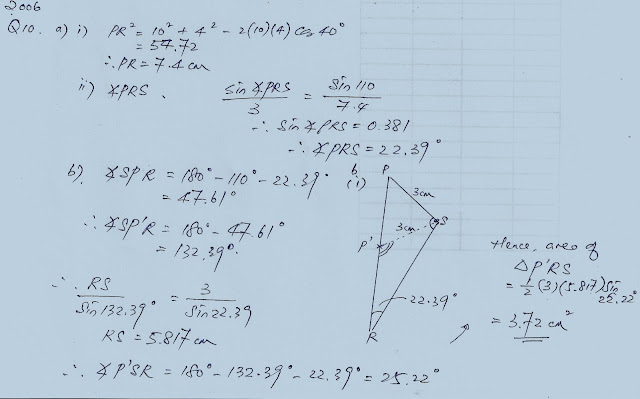 2006
Q10. a) i) PR² = 10² + 4² - 2(10)(4) cos 40°
= 54.72
∴ PR = 7.4 cm
ii) ∡PRS. sin ∡PRS / 3 = sin 110 / 7.4
∴ sin ∡PRS = 0.381
∴ ∡PRS = 22.39°
b). ∡SPR = 180° - 110° - 22.39°
= 47.61°
∴ ∡SP'R = 180° - 47.61°
= 132.39°.
∴ RS / sin 132.39° = 3 / sin 22.39
RS = 5.817 cm
∴ ∡P'SR = 180° - 132.39° - 22.39° = 25.22°
b
(i)
P
3cm
S
3cm
P'
22.39°
R
Hence, area of
△P'RS
= ½ (3)(5.817) sin
22.22°
= 3.72 cm²